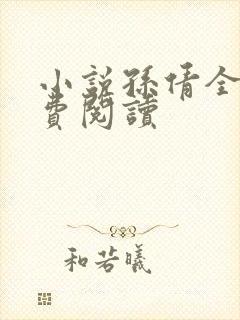 小説孫倩全
費閱讀
和若曦